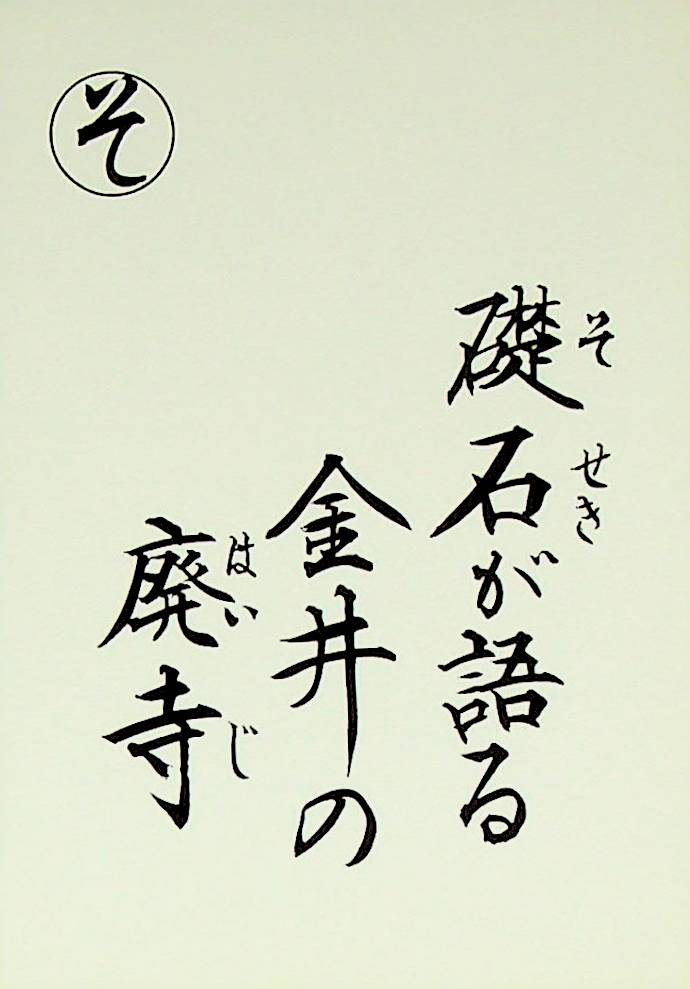 そ
礎石が語る
そせき
金井の
廃寺
はいじ